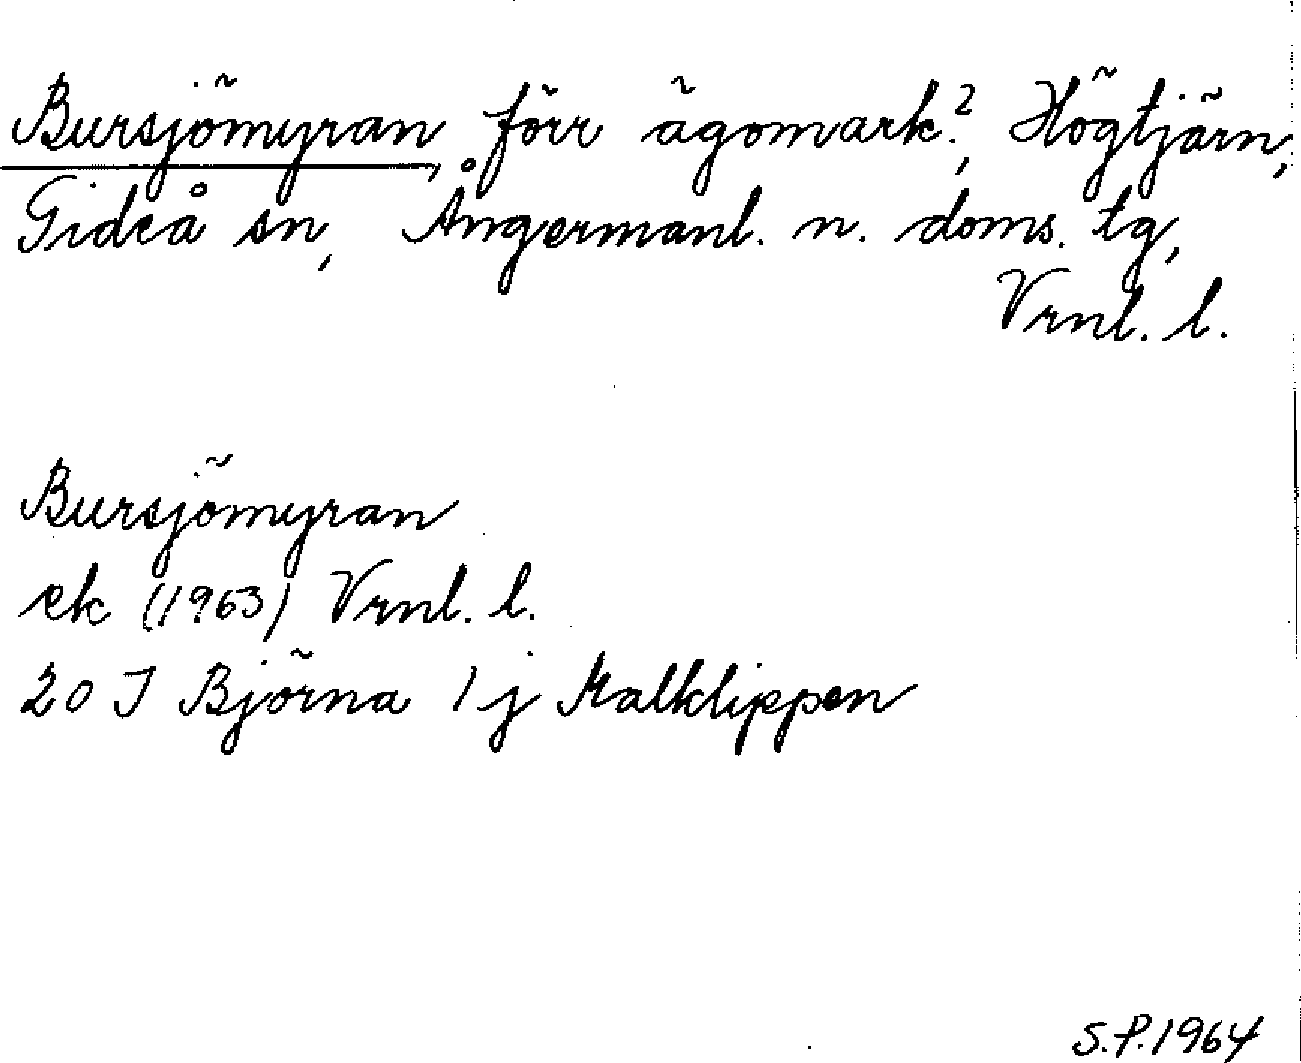 Bursjömyran, förr ägomark?, Högtjärn,
Gideå sn, Ångermanl. n. doms. tg,
Vrnl. l.
Bursjömyran
ek (1963) Vrnl. l.
20 J Björna 1 j Kalklippen
S.P. 1964